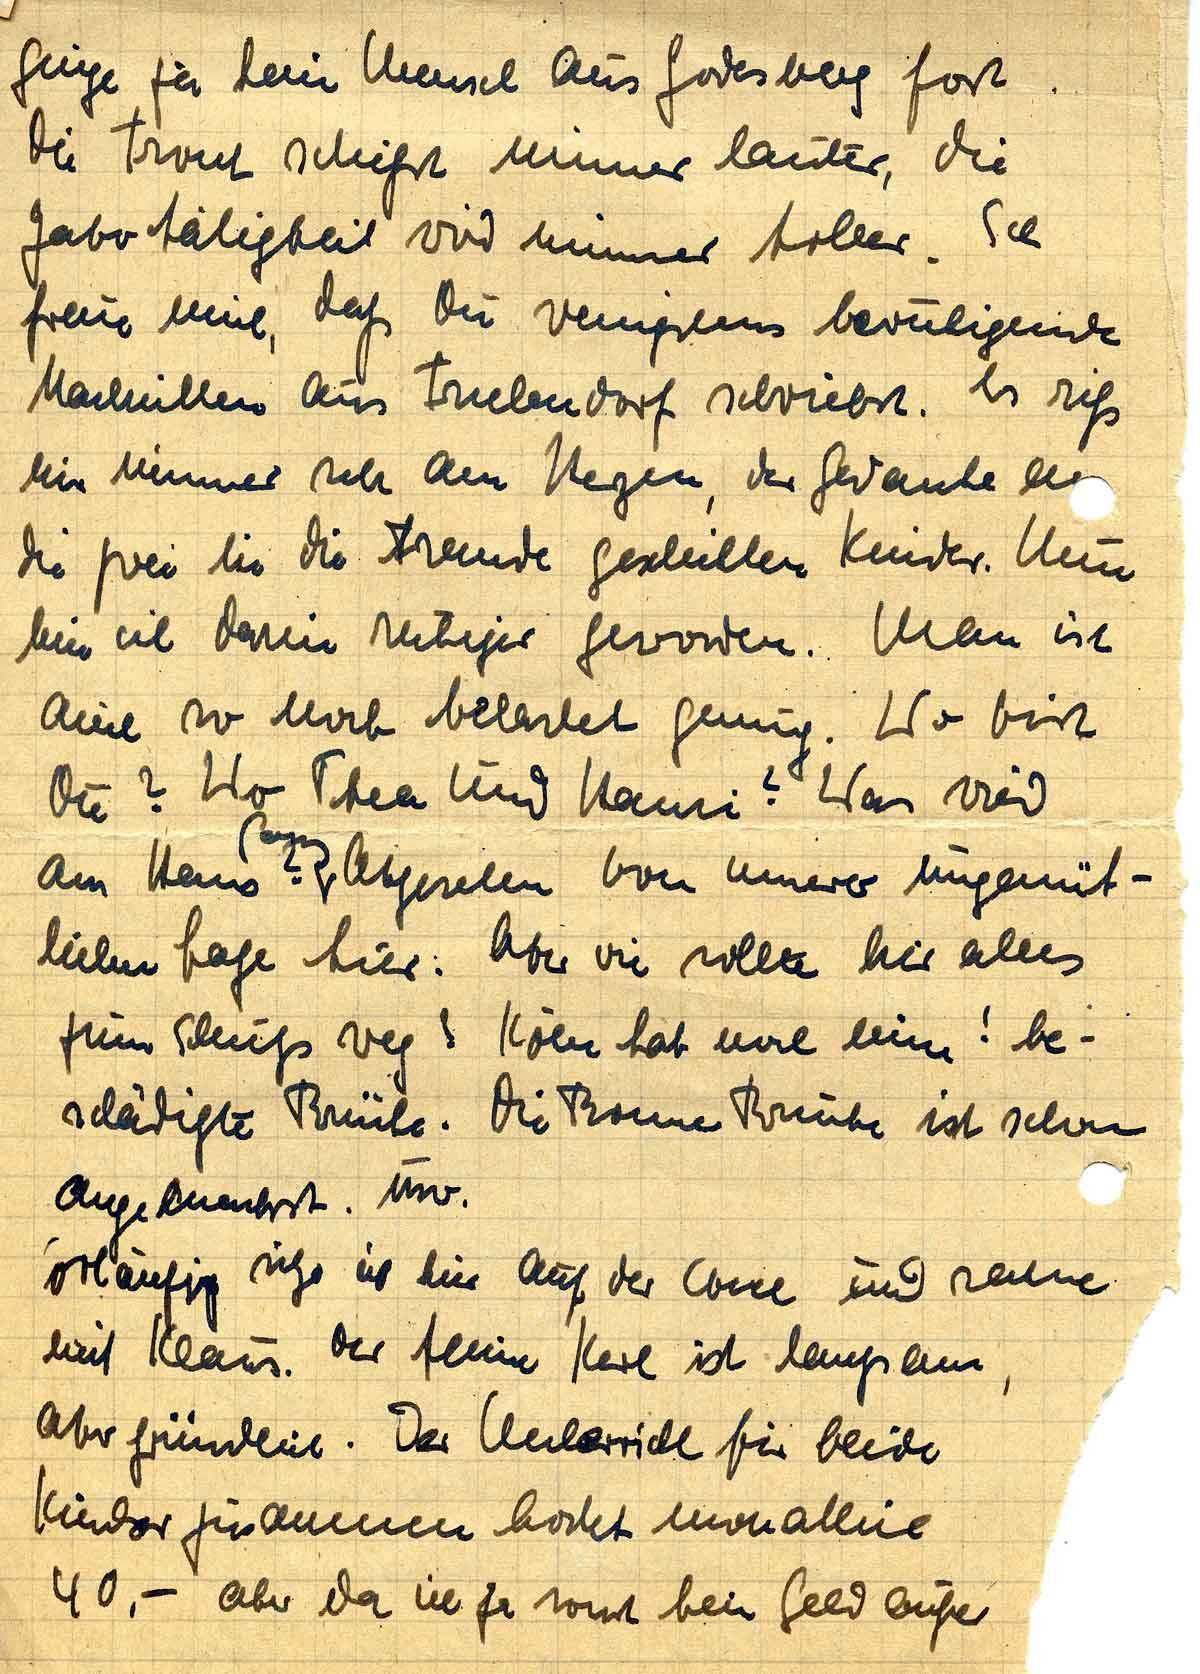 ginge ja kein Mensch aus Godesberg fort.
Die Front schießt immer lauter, die
Jabotätigkeit wird immer toller. Ich
freue mich, daß Du wenigstens beruhigende
Nachrichten aus schriebst. Es riß
mir immer sehr am Herzen, der Gedanke an
die zwei in die Fremde geschickten Kinder. Nun
bin ich darin ruhiger geworden. Man ist
auch so noch belastet genug. Wo bist
Du? Wo Thea und Hansi? Was wird
am Haus? Abgesehen von unserer ungemüt-
lichen Lage hier. Aber wie sollte hier alles
zum Schluß weg? Köln hat noch eine! be-
schädigte Brücke. Die Bonner Brücke ist schon
angeknackst. usw.
orläufig sitze ich hier auf der Couch und
mit Klaus. Der kleine Kerl ist langsam,
aber gründlich. Der Unterricht für beide
Kinder zusammen kostet monatlich
40,- aber da ich ja sonst kein Geld außer